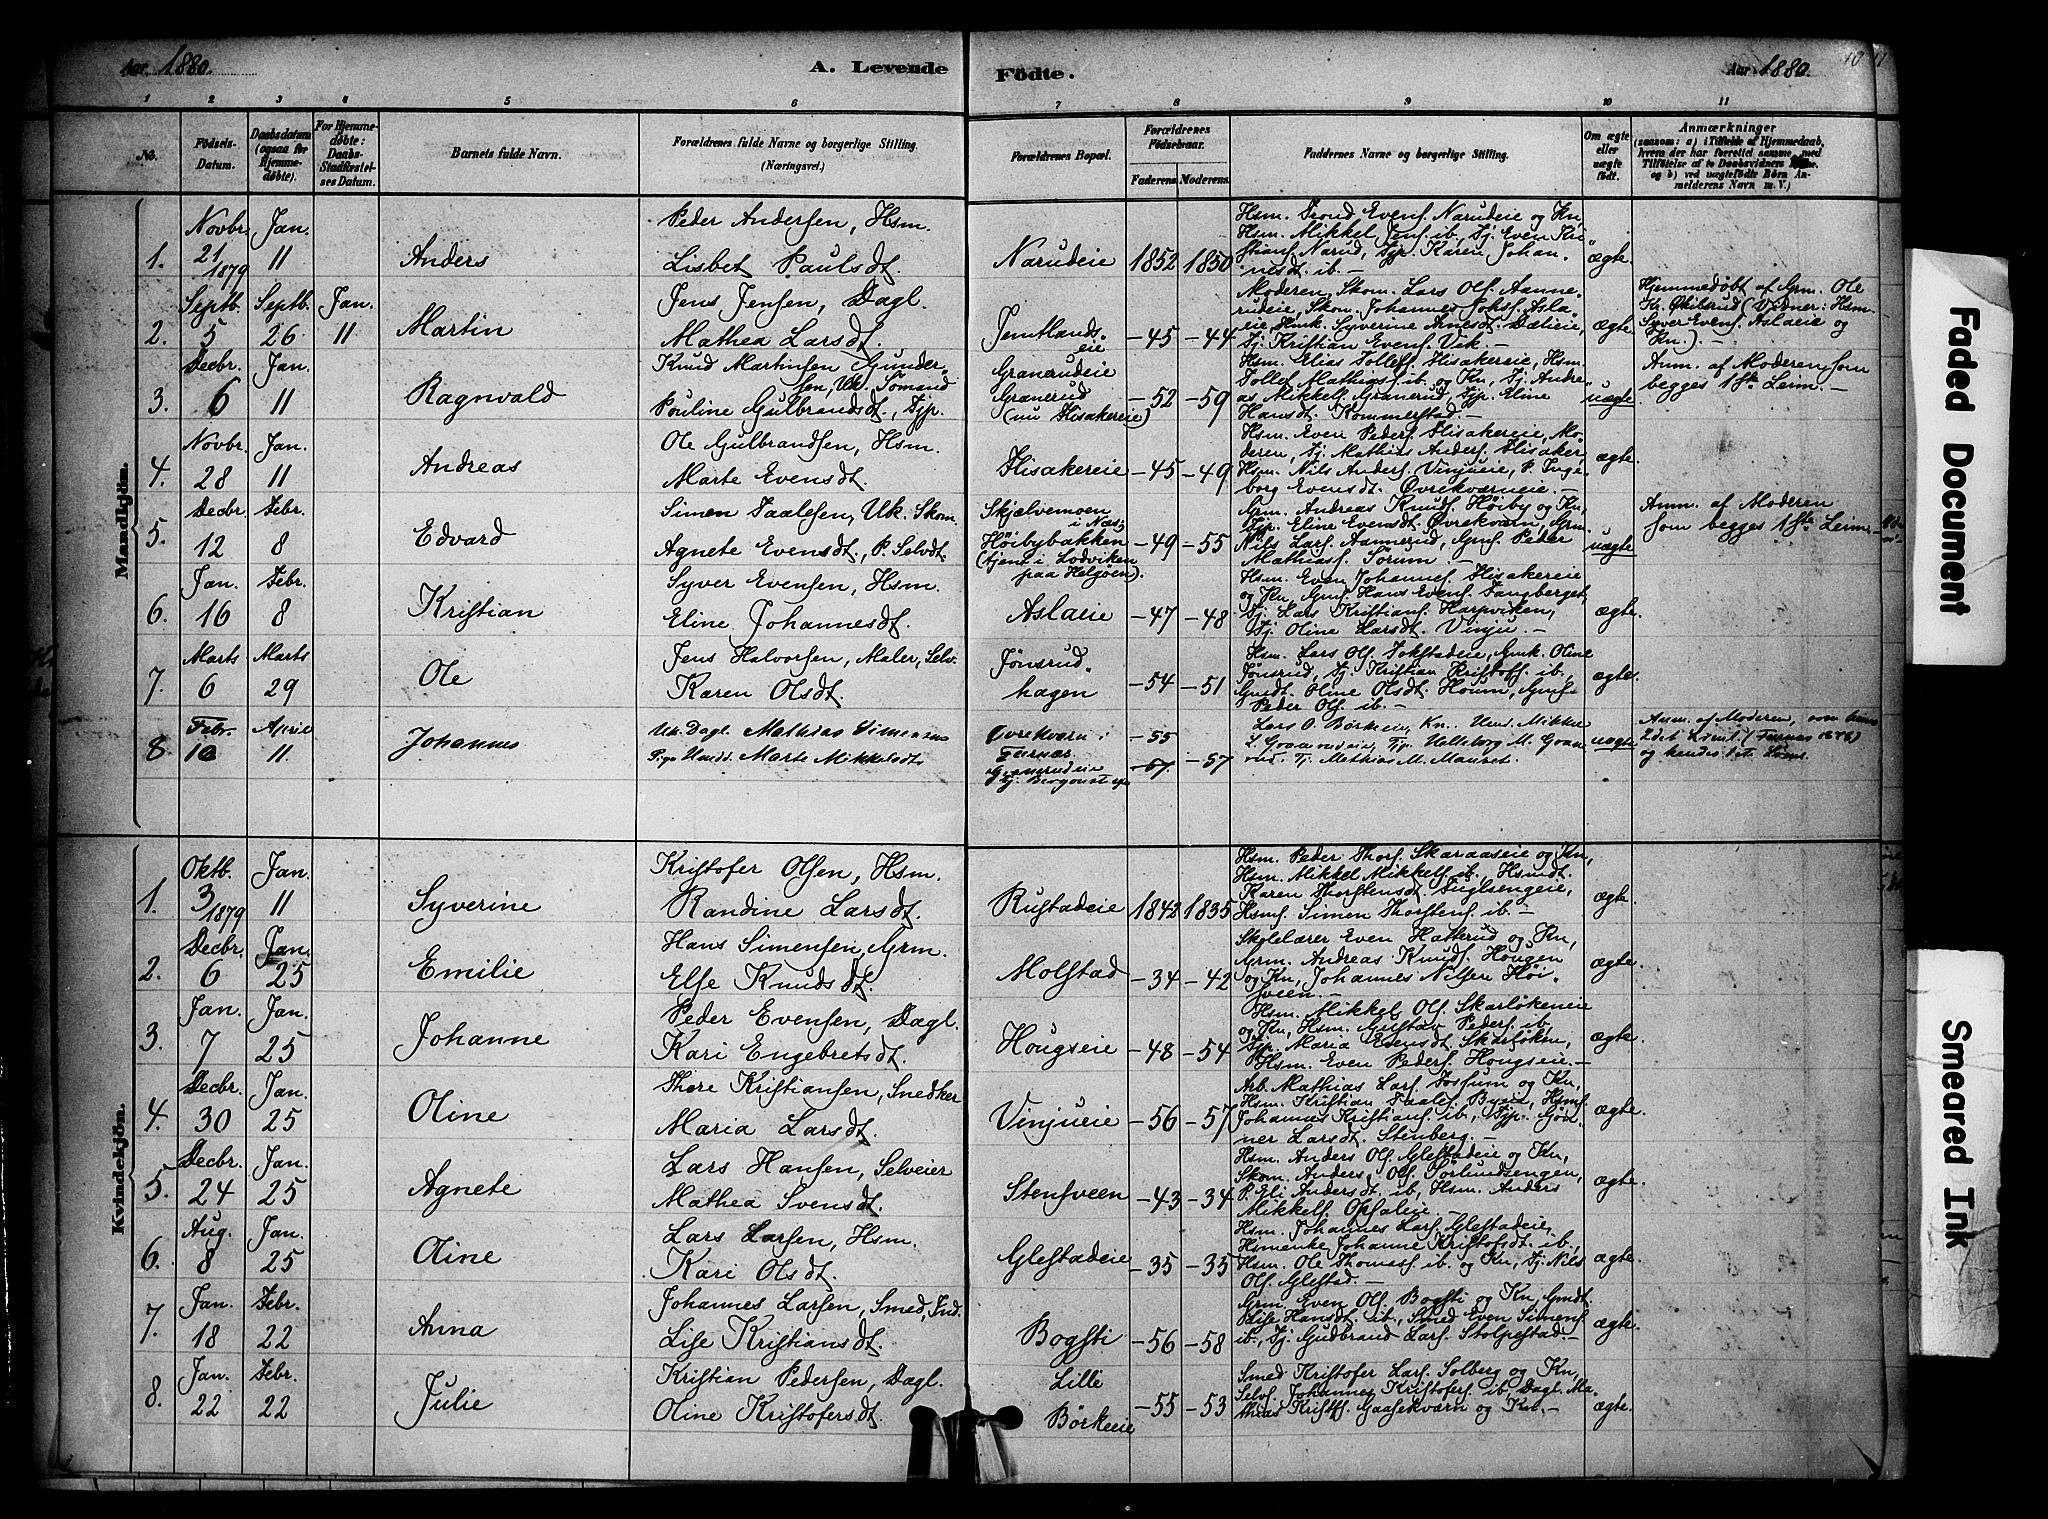 Aar 1880.
A. Levende Födte.
Aar 1880.
1 2 3 4 5 6 7 8 9 10 11
No.
Födsels-Datum.
Daabsdatum (ogsaa for Hjemme-döbte).
For Hjemme-döbte: Daabs-Stadfæstel-ses Datum.
Barnets fulde Navn.
Forældrenes fulde Navne og borgerlige Stilling. (Næringsvei.)
Forældrenes Bopæl.
Forældrenes Födselsaar.
Faderens. Moderens.
Faddernes Navne og borgerlige Stilling.
Om ægte eller uægte födt.
Anmærkninger
(saasom: a) i Tilfælde af Hjemmedaab, hvem der har forrettet samme, med Tilföielse af to Daabsvidners Navne. og b) ved uægtefödte Börn An-melderens Navn m. V.)
Mandkjön.
1. Novbr. 21 1879 Jan. 11 Anders
Peder Andersen, Hsm.
Lisbet Paulsdt.
Narudeie 1852 1850
Hsm. Trond Evens. Narudeie og Kn,
Hsm. Mikkel Jens. ib., Tj. Even Kri-
stians. Narud, Tjp. Karen Johan-
nesdt. ib. —
ægte
2. Septb. 5 Septb. 26 Jan. 11 Martin
Jens Jensen, Dagl.
Mathea Larsdt.
Jemtlands-
eie
-45 -44
Moderen, Skom. Lars Ols. Aanne-
rudeie, Skom. Johannes Joh.s. Asla-
eie, Hmk. Syverine Arnesdt. Dælieie,
Tj. Kristian Evens. Vik. —
ægte.
Hjemmedøbt af Grm. Ole
Kr. Økilsrud (Vidner: Hsm.
Syver Evens. Aslaeie og
Kn.). —
3. Decbr. 6 Jan. 11 Ragnvald
Knud Martinsen Gunder-
sen, Uk. Tømand
Pouline Gulbrandsdt., Tjp.
Granerudeie
Granerud
(nu Hisakereie)
-52 -59
Hsm. Elias Tollefs. Hisakereie, Hsm.
Tollef Mathias. ib. og Kn, Tj. Andre-
as Mikkels. Granerud, Tjp. Eline
Hansdt. Kommerstad. —
uægte
Anm. af Moderen, som
begges 1ste Leierm. —
4. Novbr. 28 Jan. 11 Andreas
Ole Gulbrandsen, Hsm.
Marte Evensdt.
Hisakereie -45 -49
Hsm. Even Peders. Hisakereie, Mo-
deren, Tj. Mathias Anders. Hisaker
Hsm. Nils Anders. Vinjueie, P. Inge-
borg Evensdt. Øvrekværneie. —
ægte.
5. Decbr. 12 Febr. 8 Edvard
Simen Taalesen, Uk. Skom.
Agnete Evensdt., P. Selvdt.
Skjælvemoen
i Næs,
Høibybakken
(tjent i Lodviken
paa Helgøen).
-49 -55
Grm. Andreas Knuds. Høiby og Kn,
Tjp. Eline Evensdt. Øvrekværn, Grm.
Nils Lars. Aannerud, Gmf. Peder
Mathiass. Sørum. —
uægte
Anm. af Moderen
som begges 1ste Leierm. —
6. Jan. 16 Febr. 8 Kristian
Syver Evensen, Hsm.
Eline Johannesdt.
Aslaeie -47 -48
Hsm. Even Johannes. Hisakereie
og Kn, Gmf. Hans Evens. Fangberget,
Tj. Lars Kristians. Harpviken,
Tj. Oline Larsdt. Vinju. —
ægte.
7. Marts 6 Marts 29 Ole
Jens Halvorsen, Maler, Selv.
Karen Olsdt.
Jønsrud-
hagen
-54 -51
Hsm. Lars Ols. Tokstadeie, Gmk. Oline
Jønsrud, Tj. Kristian Kristoffs. ib.,
Gmdt. Oline Olsdt. Houm, Gmf.
Peder Ols. ib. —
ægte.
8. Febr. 10 Aprie 11. Johannes
Uk. Dagl. Mathias Simensen
Pige Hmdt. Marte Mikkelsdt.
Øvrekværn i
Furnæs.
Granerudeie
-55
-57 -57
Lars O. Børkeeie, Kn. Mikkel
L. Granerudeie, Tjp. Valleborg M. Gran-
rud. Tj. Mathias M. Mauset.
uægte
Anm. af Moderen, som hans
2det Leierm. (Furnes 1878)
og hendes 1ste Leierm.
Kvindekjön.
1. Oktb. 3 1879 Jan. 11 Syverine
Kristofer Olsen, Hsm.
Randine Larsdt.
Rustadeie 1842 1835
Hsm. Peder Thors. Skaraaseie og Kn,
Hsm. Mikkel Mikkels. ib., Hsmdt.
Karen Thorstensdt. Fuglsengeie,
Hsmf. Simen Thorstens. ib. —
ægte.
2. Decbr. 6 Jan. 25 Emilie
Hans Simensen, Grm.
Else Knudsdt.
Molstad -34 -42
Skolelærer Even Hatterud og Kn,
Grm. Andreas Knuds. Hougen
og Kn, Johannes Nilsen Høi-
sveen. —
ægte.
3. Jan. 7 Jan. 25 Johanne
Peder Evensen, Dagl.
Kari Engebretsdt.
Hougseie -48 -54
Hsm. Mikkel Ols. Skarløkeneie
og Kn, Hsm. Gustav Peders. ib.,
Tjp. Maria Evensdt. Skarløken,
Hsm. Even Peders. Hougseie. —
ægte.
4. Decbr. 30 Jan. 25 Oline
Thore Kristiansen, Snedker
Maria Larsdt.
Vinjueie -56 -57
Arb. Mathias Lars. Fossum og Kn,
Hsm. Kristian Taales. Byeie, Hsmf.
Johannes Kristians. ib., Tjp. Gun-
ner Larsdt. Stenberg. —
ægte.
5. Decbr. 24 Jan. 25 Agnete
Lars Hansen, Selveier
Mathea Svensdt.
Stensveen -43 -34
Hsm. Anders Ols. Glestadeie og Kn,
Skom. Anders Ols. Sørlundsengen,
P. Eli Andersdt. ib., Hsm. Anders
Mikkels. Opsaleie. —
ægte.
6. Aug. 8 Jan. 25 Oline
Lars Larsen, Hsm.
Kari Olsdt.
Glestadeie -35 -35
Hsm. Johannes Lars. Glestadeie,
Hsmenke Johanne Kristofsdt. ib.,
Hsm. Ole Thomass. ib. og Kn, Tj. Nils
Ols. Glestad. —
ægte.
7. Jan. 18 Febr. 22 Anna
Johannes Larsen, Smed, Ind.
Lise Kristiansdt.
Bogsti -56 -58
Grm. Even Ols. Bogsti og Kn, Gmdt.
Lise Hansdt. ib., Smed Even Simens.
ib., Tj. Gudbrand Lars. Stolpestad. —
ægte.
8. Jan. 22 Febr. 22 Julie
Kristian Pedersen, Dagl.
Oline Kristofersdt.
Lille
Børkeeie
-55 -53
Smed Kristofer Lars. Solberg og Kn,
Selvs. Johannes Kristofers. ib. Dagl. Ma-
thias Kristoffs. Gaasekværn og Kn. —
ægte.
Faded Document
Smeared Ink